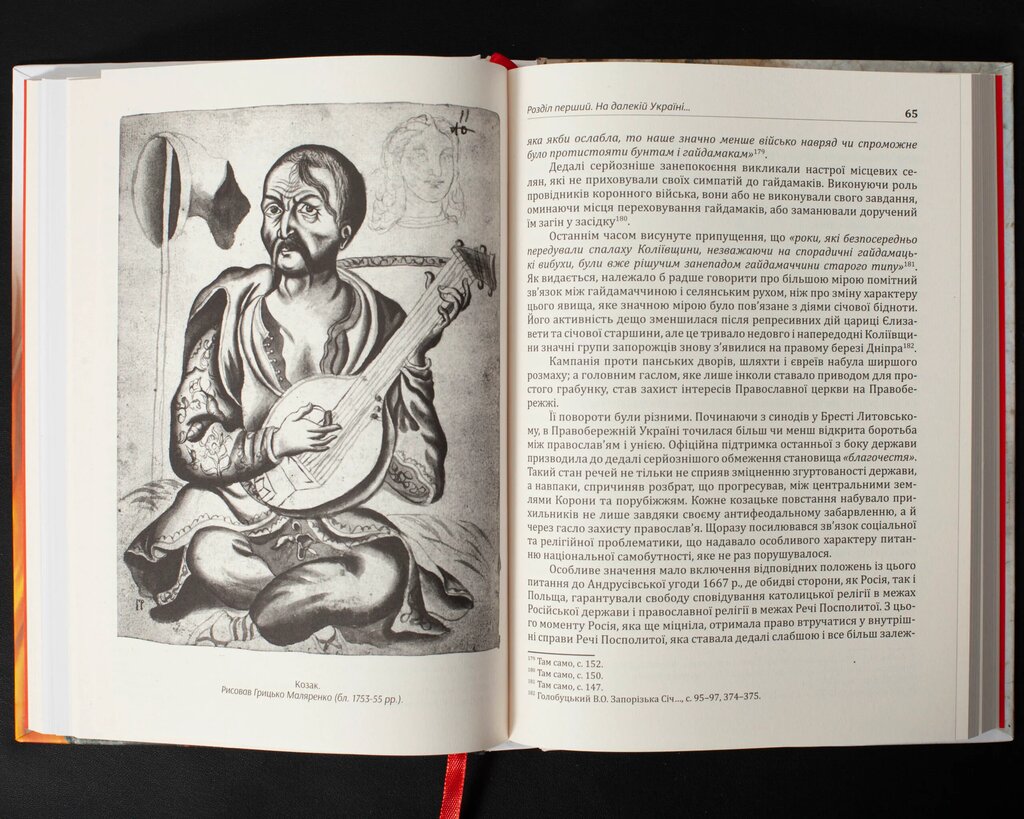 Козак.
Рисовав Грицько Маляренко (бл. 1753-55 рр.).
Розділ перший. На далекій Україні...
65
яка якби ослабла, то наше значно менше військо навряд чи спроможне
було протистояти бунтам і гайдамакам»¹⁷⁹.
Дедалі серйозніше занепокоєння викликали настрої місцевих се-
лян, які не приховували своїх симпатій до гайдамаків. Виконуючи роль
провідників коронного війська, вони або не виконували свого завдання,
оминаючи місця переховування гайдамаків, або заманювали доручений
їм загін у засідку¹⁸⁰.
Останнім часом висунуте припущення, що «роки, які безпосередньо
передували спалаху Коліївщини, незважаючи на спорадичні гайдамаць-
кі вибухи, були вже рішучим занепадом гайдамаччини старого типу»¹⁸¹.
Як видається, належало б радше говорити про більшою мірою помітний
зв'язок між гайдамаччиною і селянським рухом, ніж про зміну характеру
цього явища, яке значною мірою було пов'язане з діями січової бідноти.
Його активність дещо зменшилася після репресивних дій цариці Єлиза-
вети та січової старшини, але це тривало недовго і напередодні Коліївщи-
ни значні групи запорожців знову з'явилися на правому березі Дніпра¹⁸².
Кампанія проти панських дворів, шляхти і євреїв набула ширшого
розмаху; а головним гаслом, яке лише інколи ставало приводом для про-
стого грабунку, став захист інтересів Православної церкви на Правобе-
режжі.
Її повороти були різними. Починаючи з синодів у Бресті Литовсько-
му, в Правобережній Україні точилася більш чи менш відкрита боротьба
між православ'ям і унією. Офіційна підтримка останньої з боку держави
призводила до дедалі серйознішого обмеження становища «благочестя».
Такий стан речей не тільки не сприяв зміцненню згуртованості держави,
а навпаки, спричиняв розбрат, що прогресував, між центральними зем-
лями Корони та порубіжжям. Кожне козацьке повстання набувало при-
хильників не лише завдяки своєму антифеодальному забарвленню, а й
через гасло захисту православ'я. Щоразу посилювався зв'язок соціальної
та релігійної проблематики, що надавало особливого характеру питан-
ню національної самобутності, яке не раз порушувалося.
Особливе значення мало включення відповідних положень із цього
питання до Андрусівської угоди 1667 р., де обидві сторони, як Росія, так і
Польща, гарантували свободу сповідування католицької релігії в межах
Російської держави і православної релігії в межах Речі Посполитої. З цьо-
го моменту Росія, яка ще міцніла, отримала право втручатися у внутріш-
ні справи Речі Посполитої, яка ставала дедалі слабшою і все більш залеж-
¹⁷⁹ Там само, с. 152.
¹⁸⁰ Там само, с. 150.
¹⁸¹ Там само, с. 147.
¹⁸² Голобуцький В.О. Запорізька Січ..., с. 95–97, 374–375.